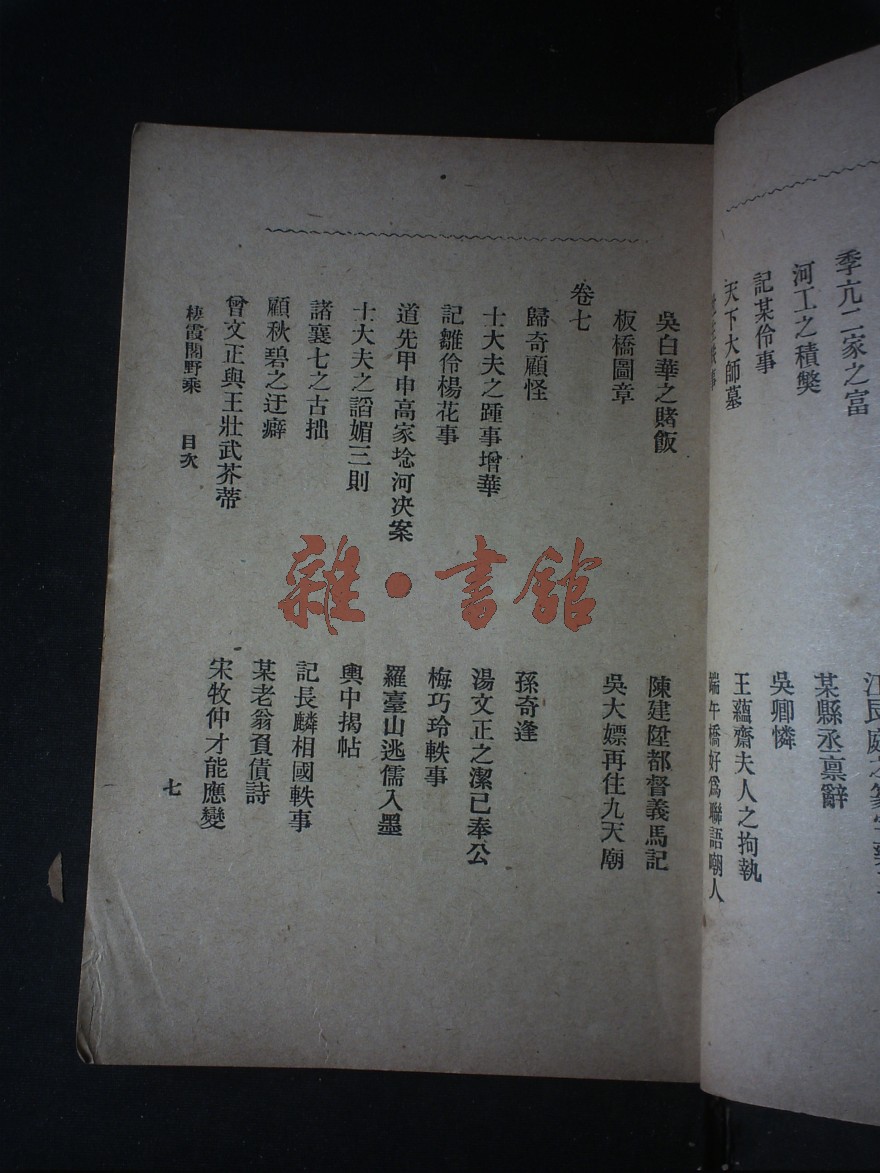 季亢二家之富
河工之積獘
記某伶事
天下大師墓
某縣丞禀辭
吳卿憐
王蘊齋夫人之拘執
端午橋好爲聯語嘲人
吳白華之賭飯
板橋圖章
陳建陞都督義馬記
吳大嫖再住九天廟
卷七
歸奇顧怪
士大夫之踵事增華
記雛伶楊花事
道光甲申高家埝河决案
士大夫之謟媚三則
諸襄七之古拙
顧秋碧之迂癖
曾文正與王壯武芥蒂
孫奇逢
湯文正之潔已奉公
梅巧玲軼事
羅臺山逃儒入墨
輿中揭帖
記長麟相國軼事
某老翁負債詩
宋牧仲才能應變
棲霞閣野乘 目次 七
雜·書館